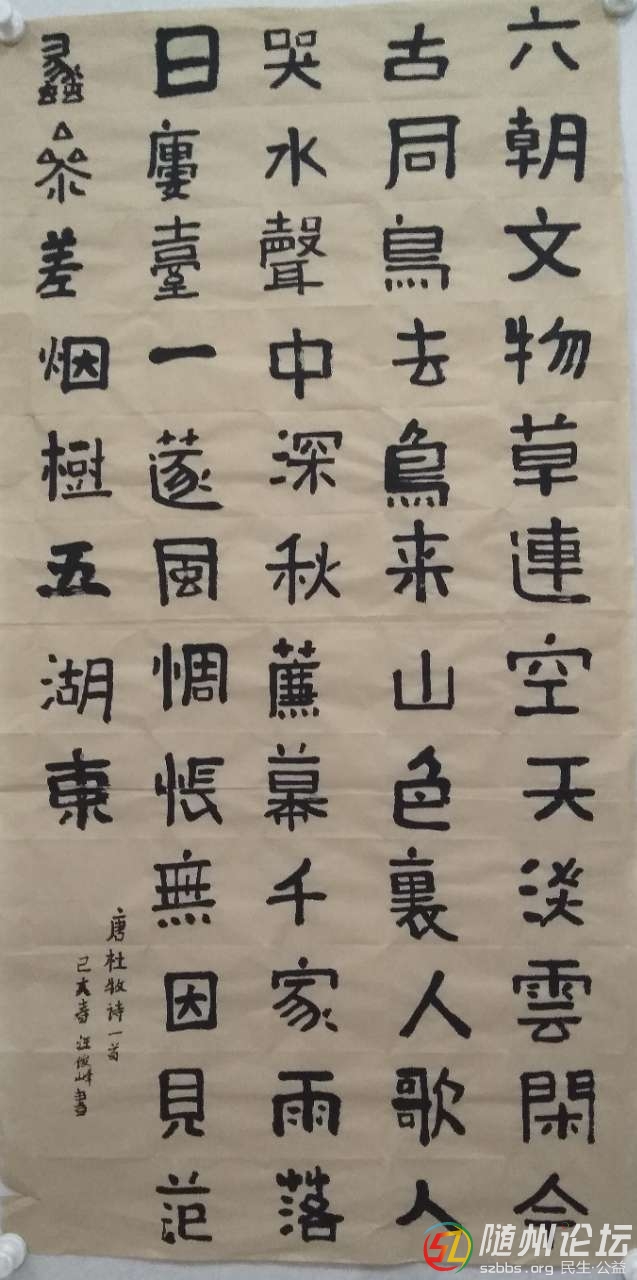 六朝文物草連空天淡雲閑今
古同鳥去鳥来山色裏人歌人
哭水聲中深秋薕幕千家雨落
日廔臺一蓫風惆悵無因見范
蠡參差烟樹五湖東
唐杜牧诗一首
己亥春汪俊峰書
随州论坛
szbbs.org 民生·公益